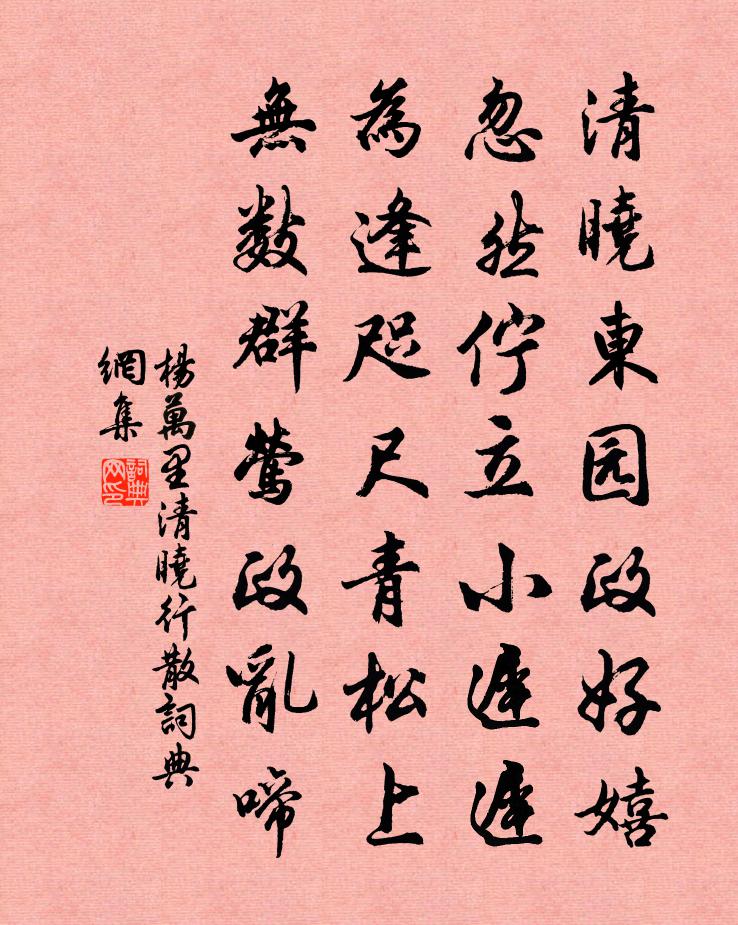 清曉東园政好嬉
忽然佇立小遲遲
為逢咫尺青松上
無數群鶯政亂啼
楊萬里清曉行散詞典
網集
詞典网印